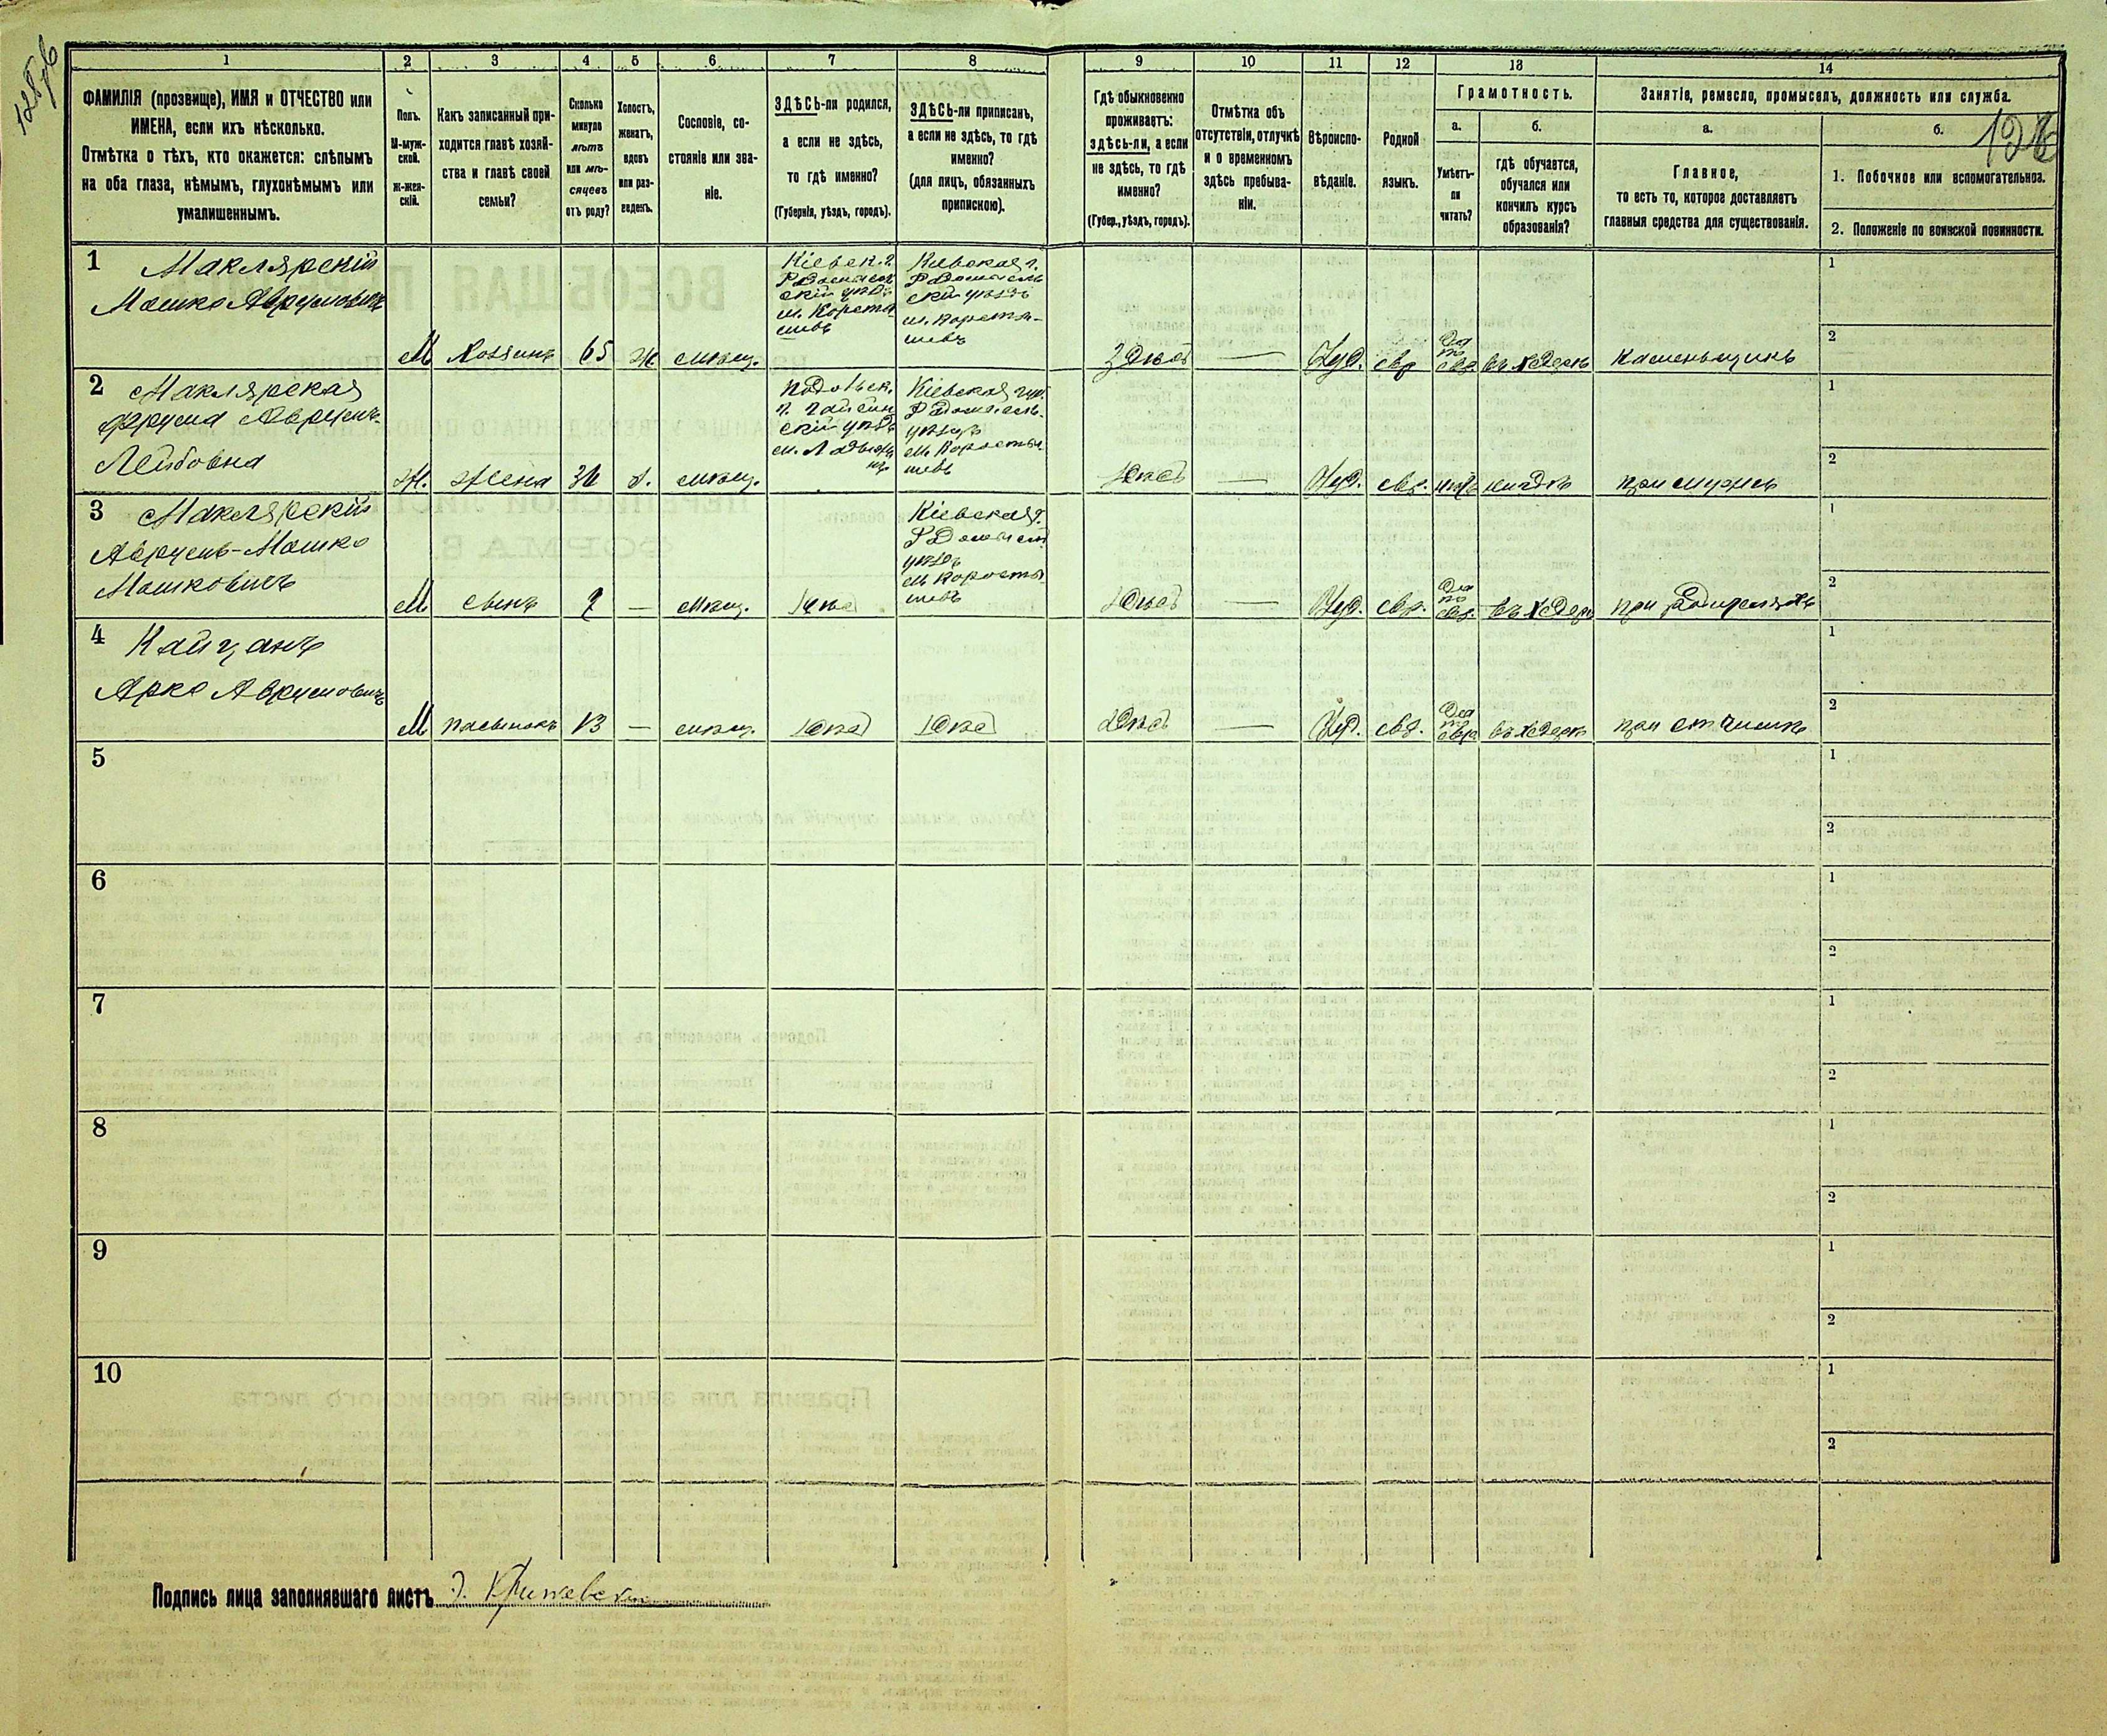 128 об
1
2
3
4
5
6
7
8
9
10
11
12
13
14
ФАМИЛІЯ (прозвище), ИМЯ и ОТЧЕСТВО или
ИМЕНА, если ихъ нѣсколько.
Отмѣтка о тѣхъ, кто окажется: слѣпымъ
на оба глаза, нѣмымъ, глухонѣмымъ или
умалишеннымъ.
Полъ.
М-муж-
ской.
ж-жен-
скій.
Какъ записанный при-
ходится главѣ хозяй-
ства и главѣ своей
семьи?
Сколько
минуло
лѣтъ
или мѣ-
сяцевъ
отъ роду?
Холостъ,
женатъ,
вдовъ
или раз-
веденъ.
Сословіе, со-
стояніе или зва-
ніе.
ЗДѢСЬ-ли родился,
а если не здѣсь,
то гдѣ именно?
(Губернія, уѣздъ, городъ).
ЗДѢСЬ-ли приписанъ,
а если не здѣсь, то гдѣ
именно?
(для лицъ, обязанныхъ
припискою).
Гдѣ обыкновенно
проживаетъ:
здѣсь-ли, а если
не здѣсь, то гдѣ
именно?
(Губер., уѣздъ, городъ).
Отмѣтка объ
отсутствіи, отлучкѣ
и о временномъ
здѣсь пребыва-
ніи.
Вѣроиспо-
вѣданіе.
Родной
языкъ.
Грамотность.
а.
б.
Умѣетъ-
ли
читать?
гдѣ обучается,
обучался или
кончилъ курсъ
образованія?
Занятіе, ремесло, промыселъ, должность или служба.
а.
б.
Главное,
то есть то, которое доставляетъ
главныя средства для существованія.
1. Побочное или вспомогательное.
2. Положеніе по воинской повинности.
1 Маклярскій
Мошко Аврумовичъ
М
Хозяинъ
65
Ж
мѣщ.
Кіевск. г.
Радомысль
скій уѣзд
м. Коросты
шевъ
Кіевская г.
Радомысль
скій уѣздъ
м. Коросты-
шевъ
Здѣсь
—
Іуд.
евр
Да
по
евр.
въ хедерѣ
каменьщикъ
1
2
2 Маклярская
Фрума Аврумъ-
Лейбовна
Ж.
Жена
36
З.
мѣщ.
Подольск.
г. Гайсин
скій уѣзд
м. Ладыжи
нъ
Кіевская губ.
Радомысль.
уѣздъ
м. Коросты
шевъ
Здѣсь
—
Іуд.
евр.
нѣтъ
нигдѣ
при мужѣ
1
2
3 Маклярскій
Аврумъ-Мошко
Мошковичъ
М
сынъ
—
мѣщ.
здѣсь
Кіевская г.
Радомысл
уѣздъ
м. Коросты
шевъ
Здѣсь
—
Іуд.
евр.
Да
по
евр.
въ хедерѣ
при родителяхъ
1
2
4 Кайцанъ
Арко Аврумовичъ
М
пасынокъ
13
—
мѣщ.
здѣсь
здѣсь
Здѣсь
—
Іуд.
евр.
Да
по
евр
въ хедерѣ
при отчимѣ
1
2
5
1
2
6
1
2
7
1
2
8
1
2
9
1
2
10
1
2
Подпись лица заполнявшаго листъ